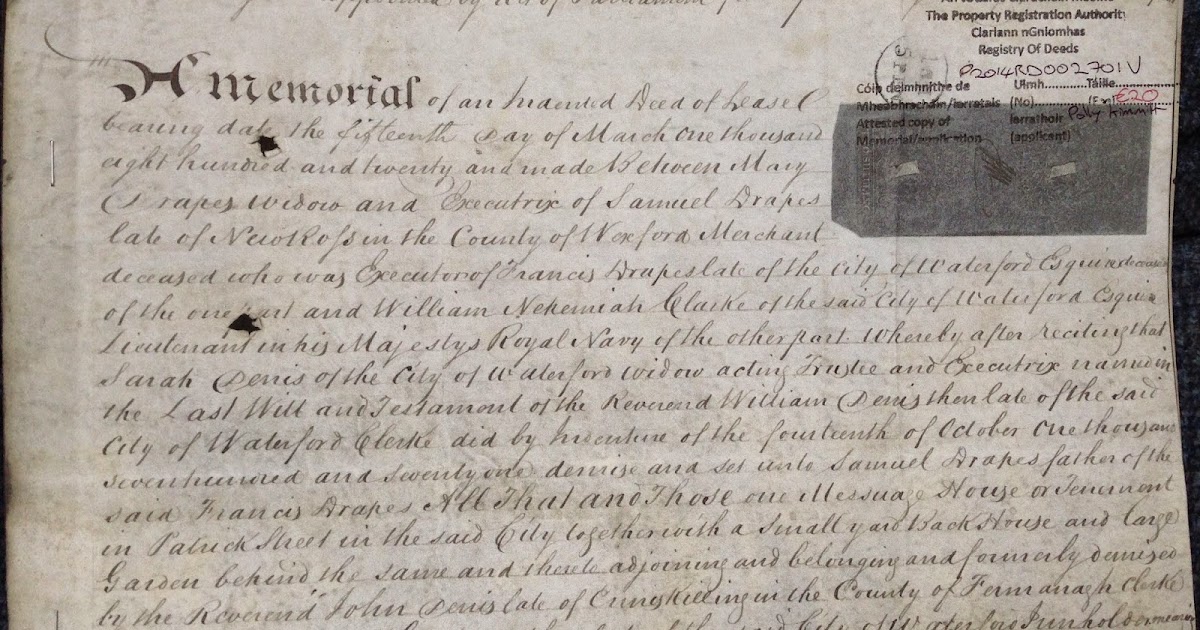 The Property Registration Authority
Clárlann nGníomhas
Registry Of Deeds
P2014RD002701V
Cóip deimhnithe de Uimh............Táille
Mheabhrachán/Iarratais (No) €20
Attested copy of Iarrathóir
Memorial/application (applicant)
A Memorial of an Indented Deed of Lease
bearing date the fifteenth Day of March One thousand
eight hundred and twenty and made Between Mary
Drapes Widow and Executrix of Samuel Drapes
late of New Ross in the County of Wexford Merchant
deceased who was Executor of Francis Drapes late of the City of Waterford Esquire deceased
of the one part and William Nehemiah Clarke of the said City of Waterford Esquire
Lieutenant in his Majestys Royal Navy of the other part Whereby after reciting that
Sarah Denis of the City of Waterford widow acting Trustee and Executrix named in
the Last Will and Testament of the Reverend William Denis then late of the said
City of Waterford Clerke did by Indenture of the fourteenth of October One thousand
seven hundred and seventy one demise and set unto Samuel Drapes father of the
said Francis Drapes All That and Those one Messuage House or Tenement
in Patrick Street in the said City together with a small yard Back House and large
Garden behind the same and thereto adjoining and belonging and formerly demised
by the Reverend John Denis late of Enniskilling in the County of Fermanagh Clerke
the said City of Waterford Innholder